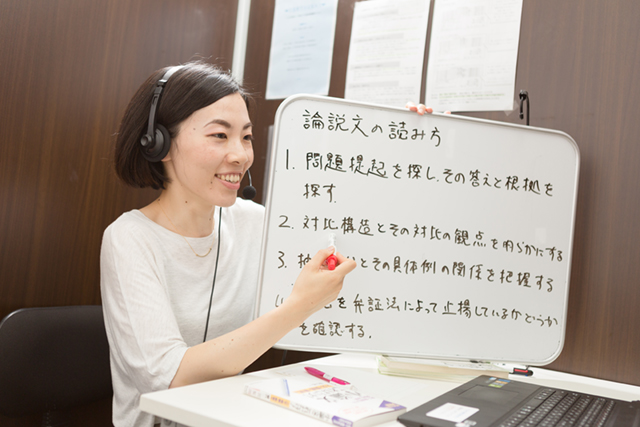 論説文の読み方
1. 問題提起を探し、その答えと根拠を
探す.
2. 対比構造とその対比の観点を明らかにする
3. とその具体例の関係を把握する
を弁証法によって止揚しているかどうか
を確認する.